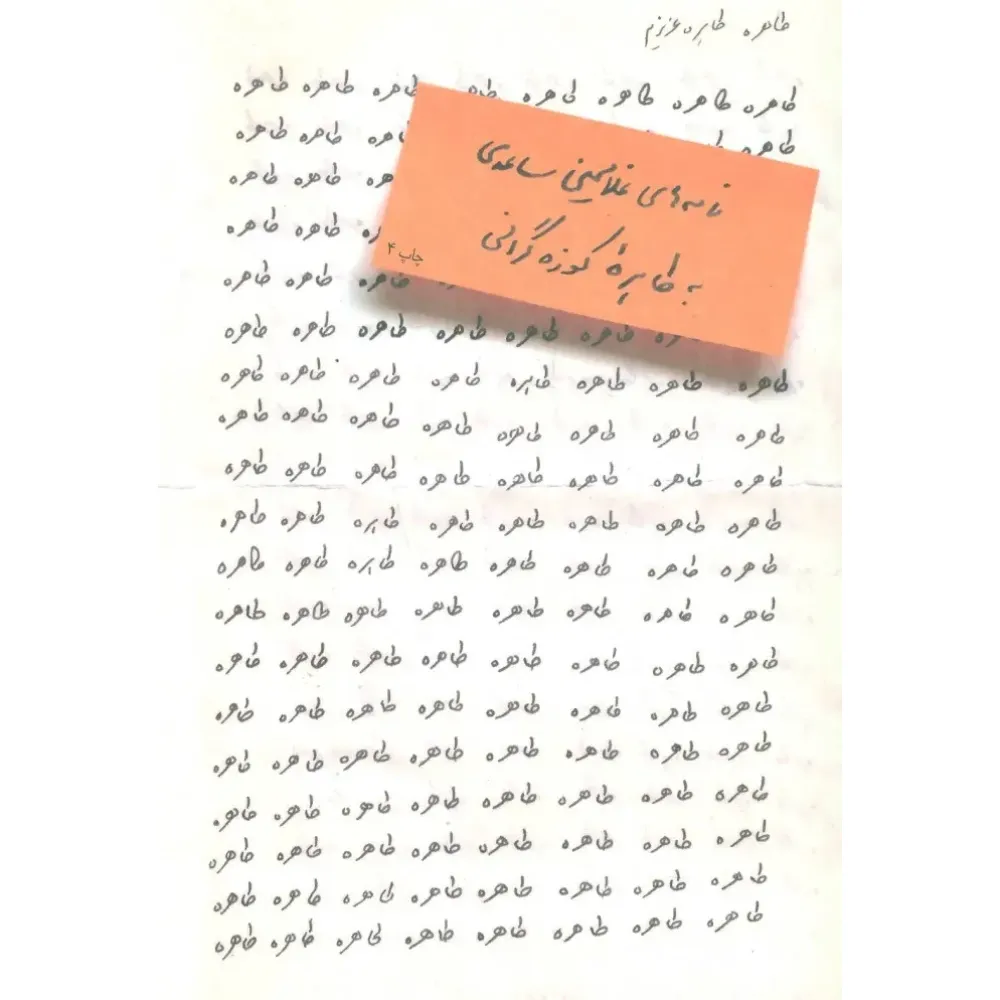 طاهره طاهره عزیزم
طاهره طاهره طاهره طاهره طاهره طاهره طاهره
طاهره طاهره طاهره
طاهره طاهره
طاهره طاهره
طاهره طاهره طاهره
طاهره طاهره طاهره طاهره طاهره طاهره
طاهره طاهره طاهره طاهره طاهره طاهره طاهره طاهره
طاهره طاهره طاهره طاهره طاهره طاهره طاهره طاهره
طاهره طاهره طاهره طاهره طاهره طاهره طاهره طاهره
طاهره طاهره طاهره طاهره طاهره طاهره طاهره طاهره
طاهره طاهره طاهره طاهره طاهره طاهره طاهره طاهره
طاهره طاهره طاهره طاهره طاهره طاهره طاهره طاهره
طاهره طاهره طاهره طاهره طاهره طاهره طاهره طاهره
طاهره طاهره طاهره طاهره طاهره طاهره طاهره طاهره
طاهره طاهره طاهره طاهره طاهره طاهره طاهره طاهره
طاهره طاهره طاهره طاهره طاهره طاهره طاهره طاهره
طاهره طاهره طاهره طاهره طاهره طاهره طاهره طاهره
طاهره طاهره طاهره طاهره طاهره طاهره طاهره طاهره
طاهره طاهره طاهره طاهره طاهره طاهره طاهره طاهره
نامه‌های غلامحسین ساعدی
به طاهره کوزه‌گرانی
چاپ ۴